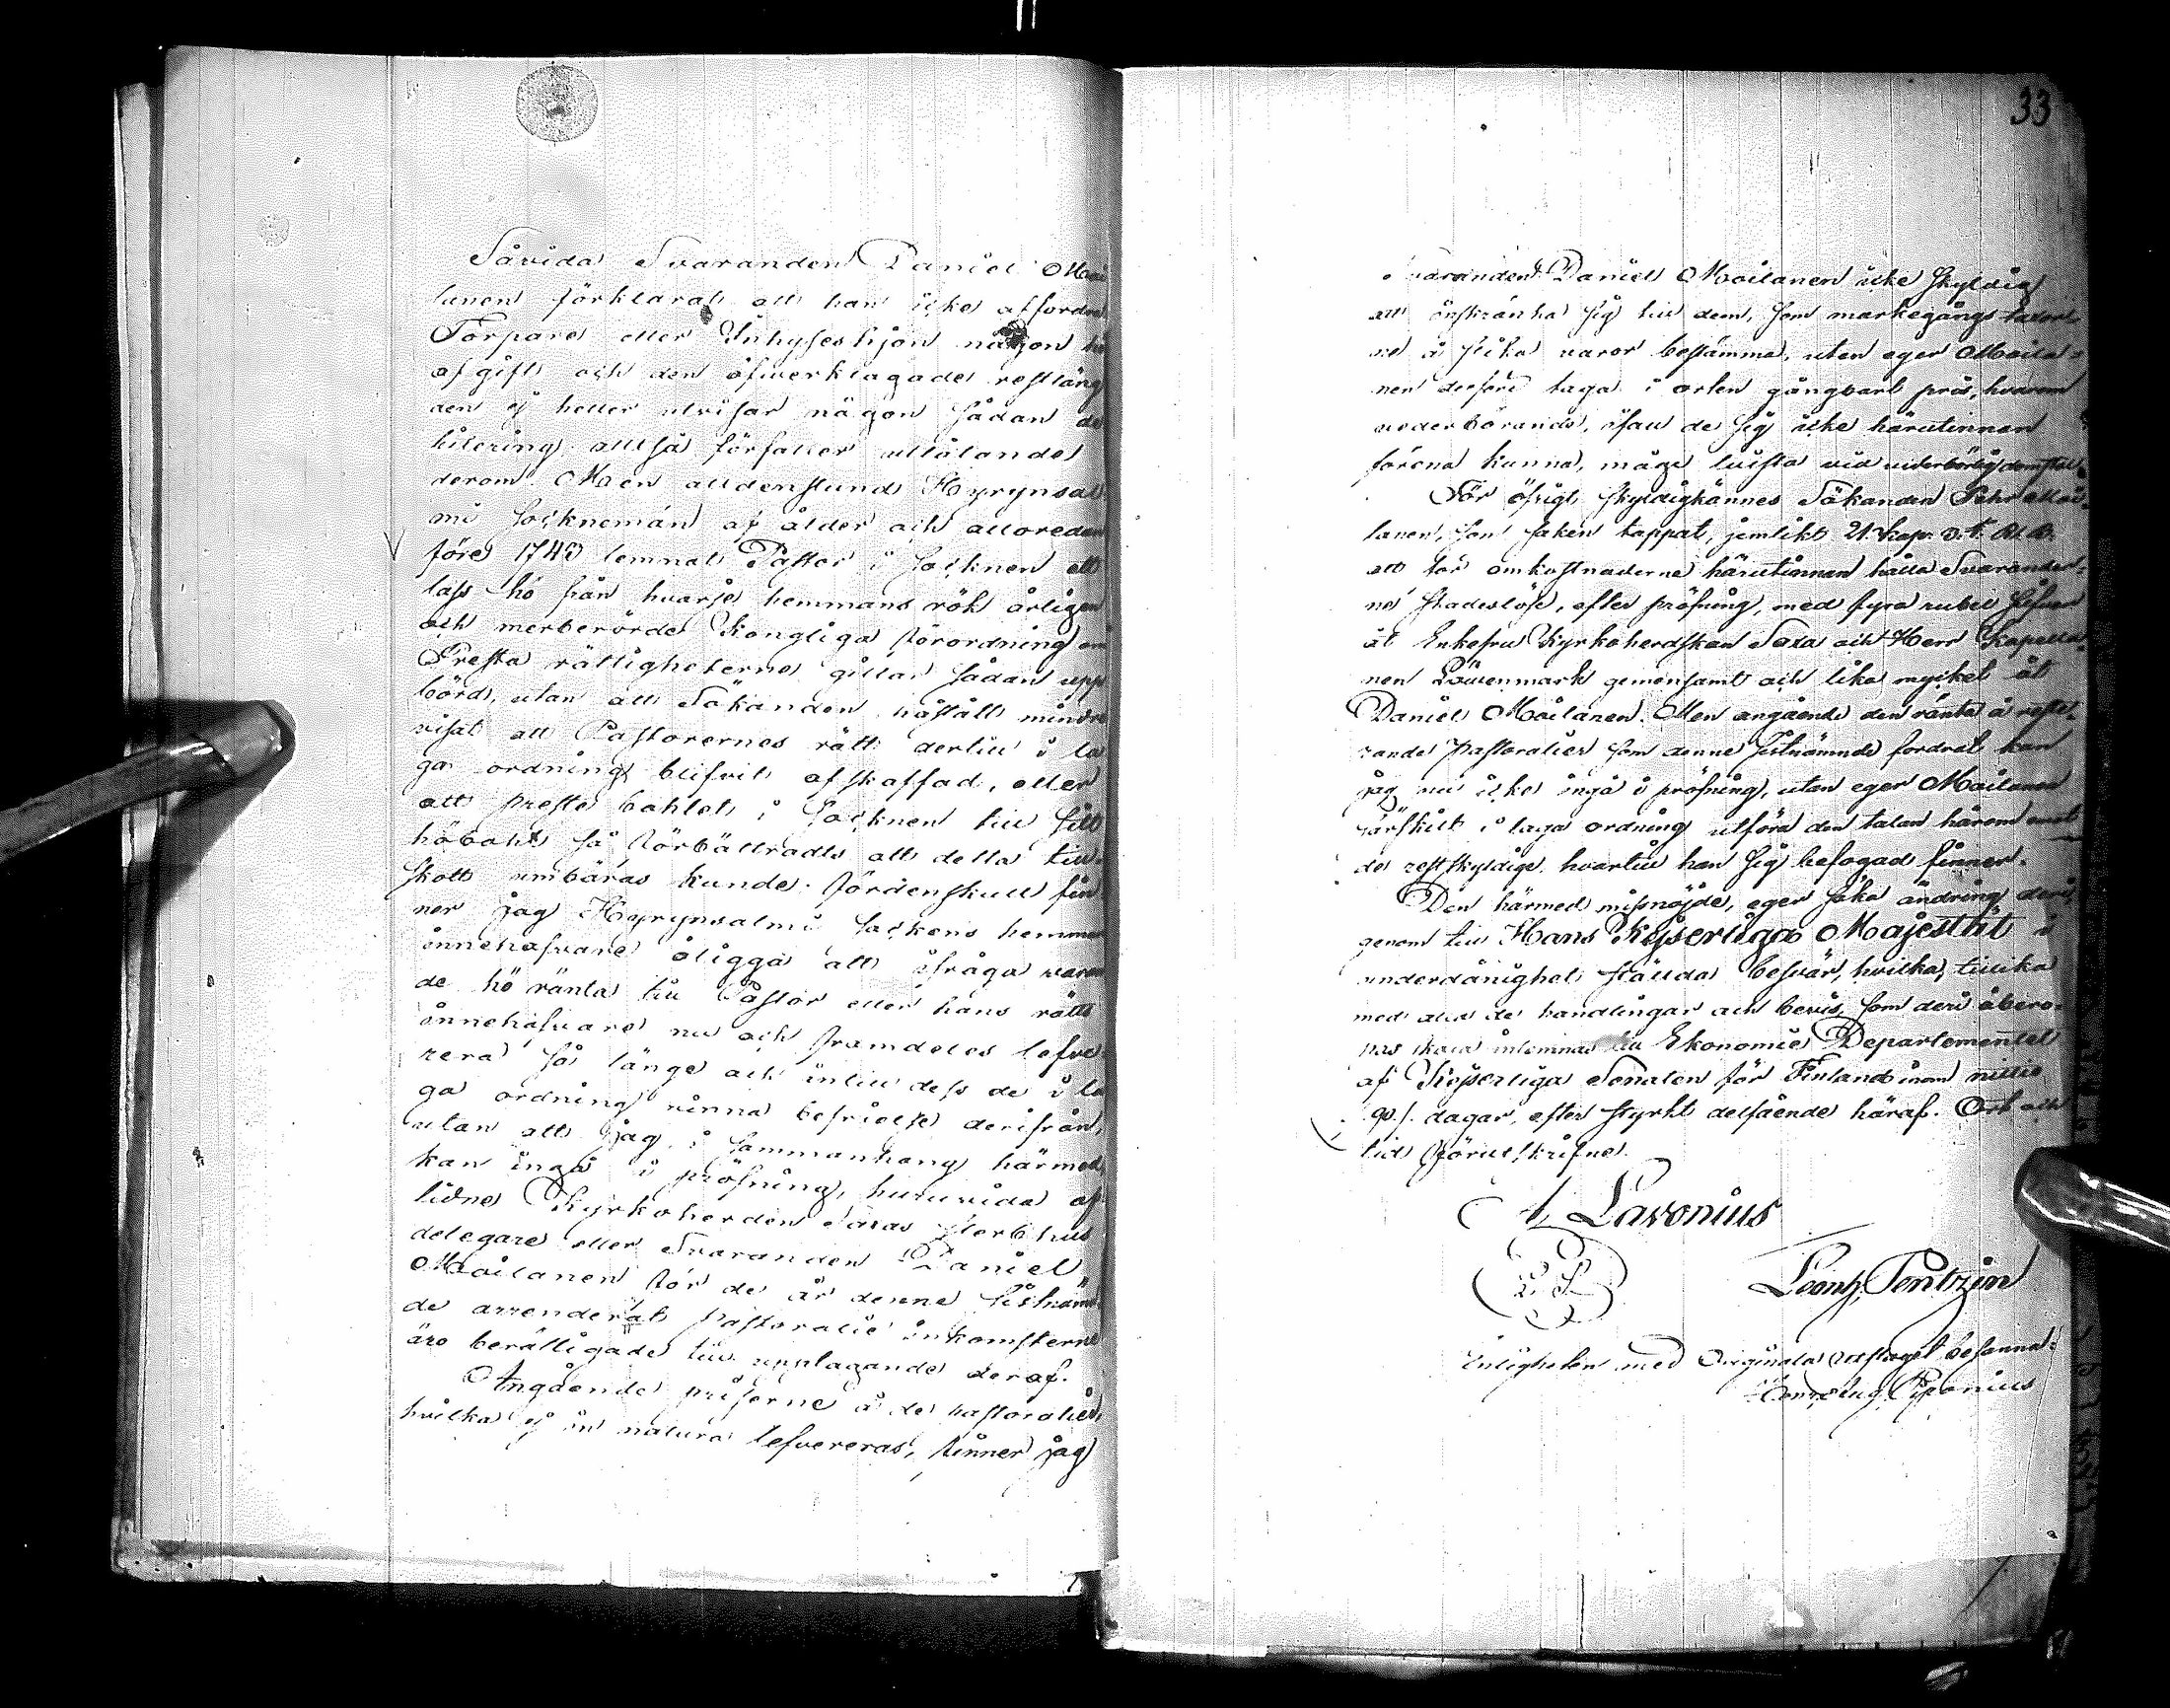 Såvida Svaranden Daniel Moi
lanen förklarat att han icke affordrat
Torpare eller Inhyseshjon någon hö
afgift och den öfverklagade restläng
den ej heller utvisar någon sådan de
bitering alltså förfaller utlåtande
derom. Men alldenstund Hyrynsal
mi Socknemän af ålder och allaredan
före 1743 lemnat Pastor i Socknen ett
lass hö från hvarje hemmans rök årligen
och merberörde Kongliga Förordning om
Presta rättigheterne gillar sådan upp
börd, utan att Sökanden påstått mindre
visat att Pastorernes rätt dertill i la
ga ordning blifvit afskaffad, eller
att preste bohlet i Socknen till sitt
höbohl så förbättrats att detta till
skott umbäras kunde: Fördenskull fin
ner jag Hyrynsalmi Sockens hemmans
innehafvare åligga att ifråga varan
de hö ränta till Pastor eller hans rätts
innehafvare nu och framdeles lefve
rera så länge och intill dess de i la
ga ordning vinna befrielse derifrån,
utan att jag i sammanhang härmed
kan ingå i pröfning, huruvida af
lidne Kyrkoherden Saxas Sterbhus
delegare eller Svaranden Daniel
Moilanen för de år denne sistnämn
de arrenderat pastoralie inkomsterne
äro berättigade till upptagande deraf.
Angående priserne å de pastoralier,
hvilka ej in natura lefvereras, finner jag
33
Svaranden Daniel Moilanen icke skyldig
att inskränka sig till dem, som markegångs taxor-
ne å slika varor bestämma, utan eger Moila-
nen derföre taga i orten gångbart pris, hvarom
vederbörande, ifall de sig icke härutinnan
förena kunna, måge tvista vid vederbörlig domstol.
För öfrigt skyldigkännes Sökanden Pehr Moi-
lanen, som saken tappat, jemlikt 21. Kap. 3. §. R. B.
att för omkostnaderne härutinnan hålla Svarander-
ne skadeslöse, efter pröfning, med fyra rubel Silfver
åt Enkefru Kyrkoherdskan Saxa och Herr Kapella-
nen gemensamt och lika mycket åt
Daniel Moilanen. Men angående den ränta å reste-
rande pastoralier som denne sistnämnde fordrat kan
jag nu icke ingå i pröfning, utan eger Moilanen
särskilt i laga ordning utföra den talan härom emot
de restskyldige, hvartill han sig befogad finner.
Den härmed missnöjde, eger söka ändring deri,
genom till Hans Kejserliga Majestät i
underdånighet ställda besvär, hvilka, tillika
med alla de handlingar och bevis, som deri åbero-
pas skola inlemnas till Ekonomie Departementet
af Kejserliga Senaten för Finland inom nittio
90./. dagar, efter styrkt delfående häraf. Ort och
tid förutskrifne.
A. Lavonius
L. S.
Tentzin
Enligheten med Originala Utslaget besannar: